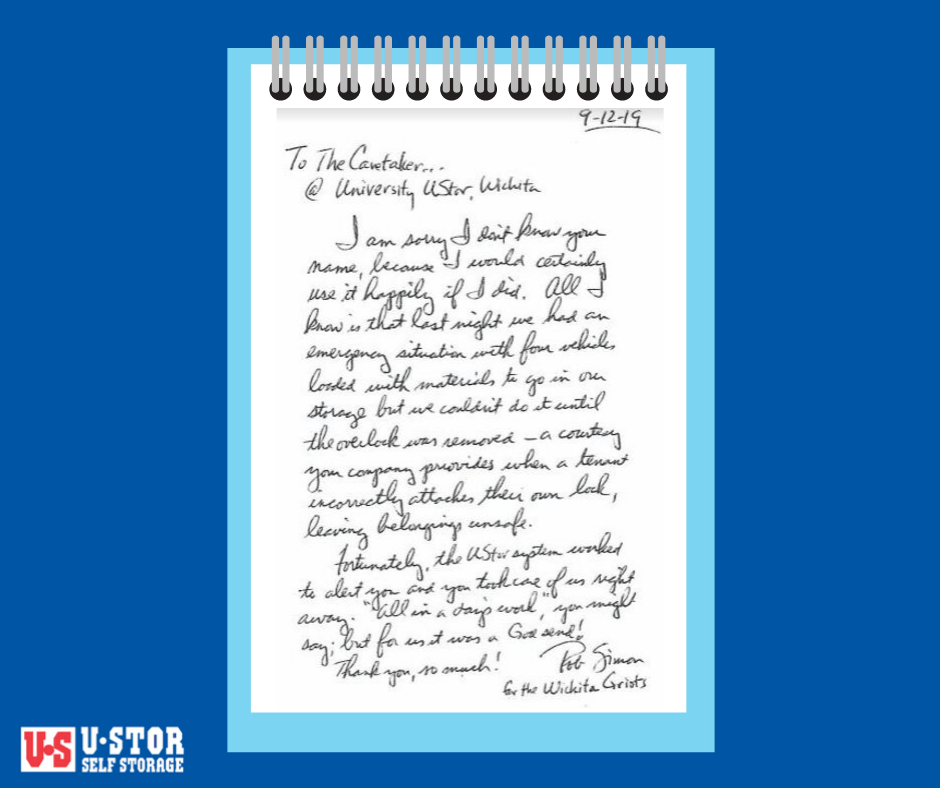 9-12-19
To The Caretaker...
@ University UStor, Wichita
I am sorry I don't know your
name, because I would certainly
use it happily if I did. All I
know is that last night we had an
emergency situation with four vehicles
loaded with materials to go in our
storage but we couldn't do it until
the overlock was removed – a courtesy
your company provides when a tenant
incorrectly attaches their own lock,
leaving belongings unsafe.
Fortunately, the UStor system worked
to alert you and you took care of us right
away. "All in a day's work," you might
say; but for us it was a God send!
Thank you, so much! Simon
for the Wichita Griots
U•S U•STOR
SELF STORAGE